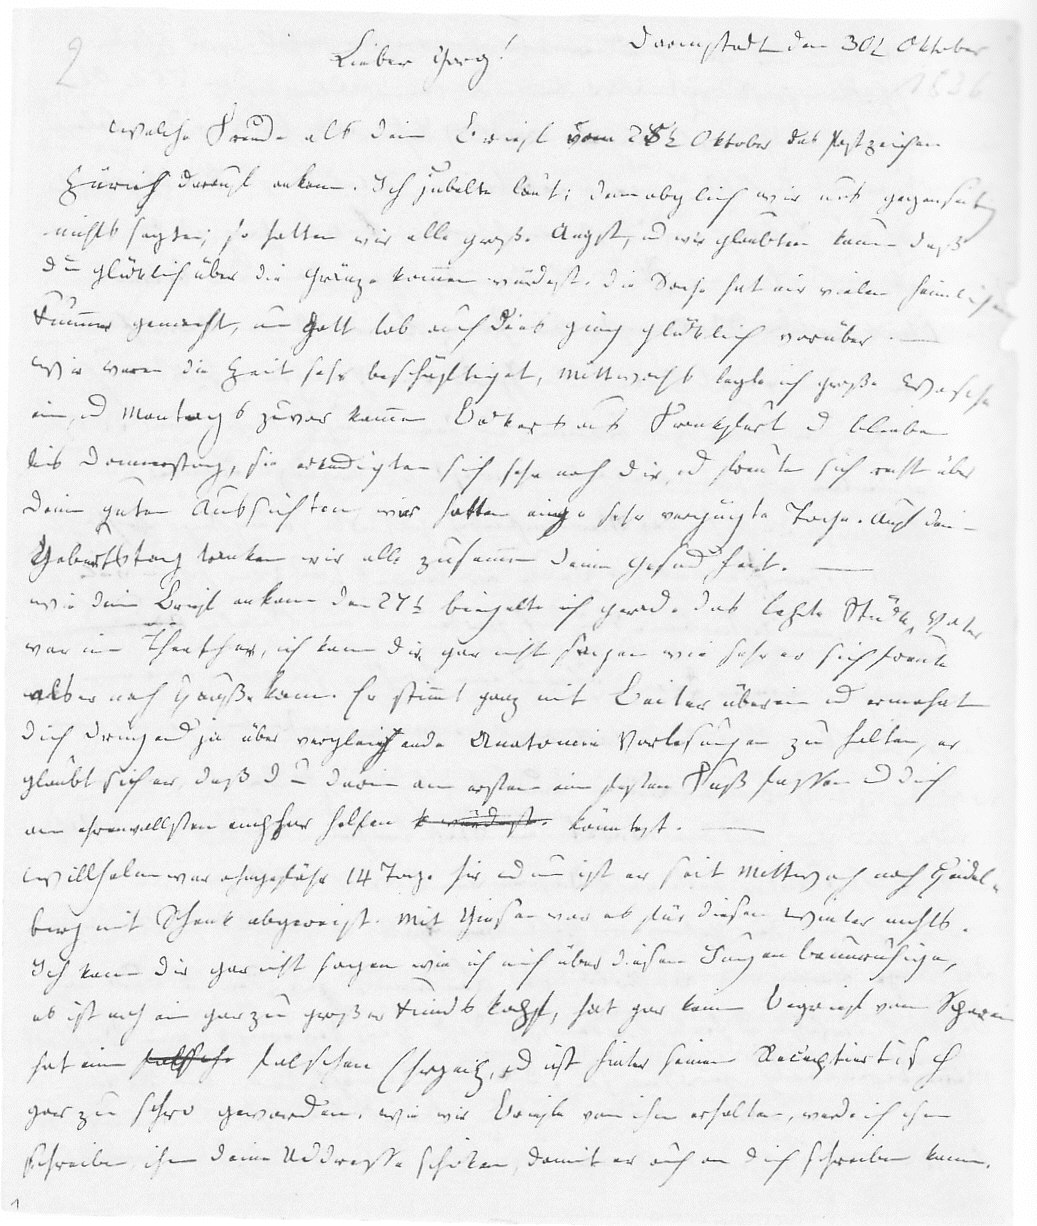 2
Darmstadt den 30t Oktober
1836
Lieber Georg!
Welche Freude als dein Brief vom 22t Oktober das Postzeichen
Zürich darauf ankam. Ich jubelte laut; denn obgleich wir uns gegenseitig
nichts sagten, so hatten wir alle große Angst, u wir glaubten kaum daß
du glücklich über die Gränze kommen würdest. die Sache hat mir vielen heimlichen
Kummer gemacht, nun Gott lob auch dies ging glücklich vorüber. —
Wir waren die Zeit sehr beschäftiget, Mittwochs legte ich große Wasche
ein, u Montags zuvor kamen Beckers aus Frankfurt u blieben
bis Donnerstag, sie erkundigten sich sehr nach dir, u freuten sich recht über
deine guten Aussichten, wir hatten einige sehr vergnügte Tage. Auf dein
Geburtstag tranken wir alle zusammen deine Gesundheit. —
Wie dein Brief ankam den 27t bügelte ich gerade das letzte Stück, Vater
war im Theather, ich kann dir gar nicht sagen wie sehr er sich freute
als er nach Hauße kam. Er stimmt ganz mit überein u ermahnt
dich dringend ja über vergleichende Anatomie Vorlesungen zu halten, er
glaubt sicher, daß du darin am ersten ein festen Fuß fassen u dich
am ehrenvollsten helfen würdest. könntest. —
Willhelm war ohngefähr 14 Tage hier u nun ist er seit Mittwoch nach Heidel-
berg mit Schenk abgereist. Mit Giesen war es für diesen Winter nichts.
Ich kann dir gar nicht sagen wie ich mich über diesen Jungen beunruhige,
es ist noch ein gar zu großer Kindskopf, hat gar kein Begriff vom
hat ein falsche falschen Ehrgeitz, u ist hinter seinem Receptiertisch
gar zu geworden. Wie wir Briefe von ihm erhalten, werde ich ihm
schreiben, ihm deine Addresse schicken, damit er auch an dich schreiben kann.
1